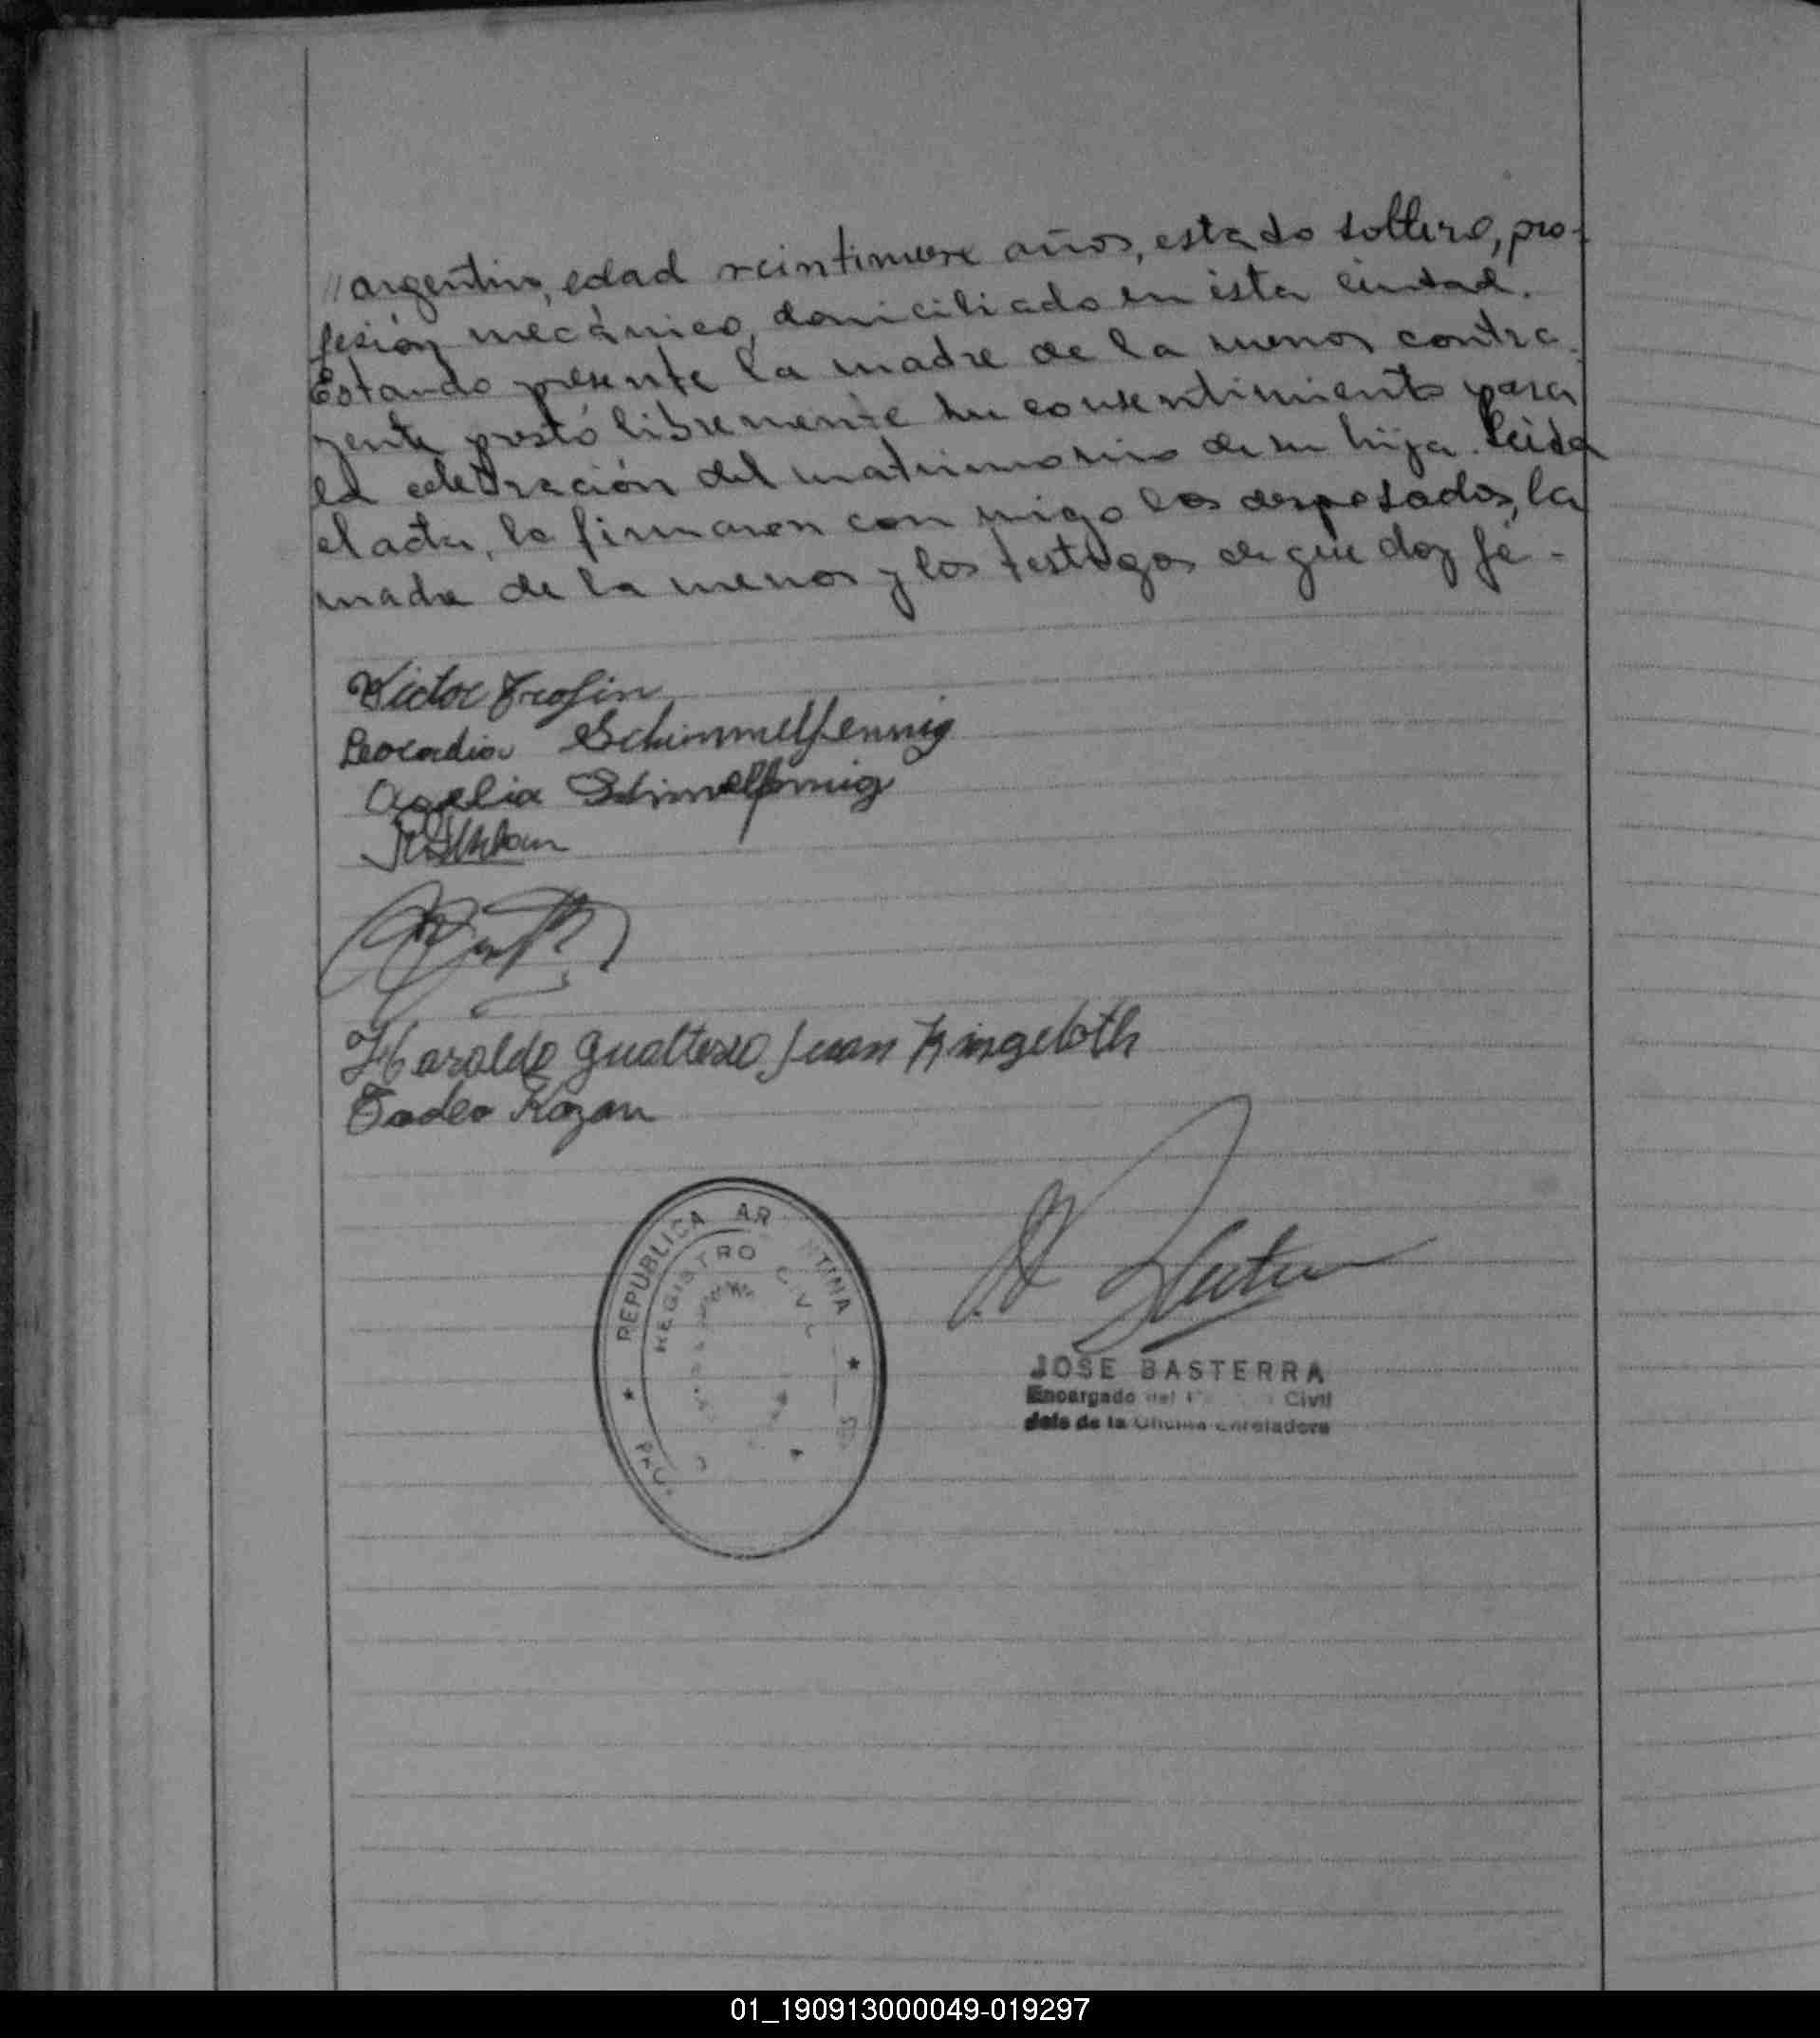 // argentino, edad veintinueve años, estado soltero, pro-
fesión mecánico, domiciliado en ésta ciudad.
Estando presente la madre de la menor contra-
yente prestó libremente su consentimiento para
la celebración del matrimonio de su hija. Leida
el acta, la firmaron con migo los desposados, la
madre de la menor y los testigos de que doy fé -
Victor Trofin
Leocadia Schimmelfennig
Agelia Schimelfennig
Haraldo Gualterio Juan Ringeloth
Tadeo Kozan
REPUBLICA AR NTINA
REGISTRO CIVIL
JOSE BASTERRA
Encargado del Civil
Jefe de la Oficina Enroladora
01_190913000049-019297